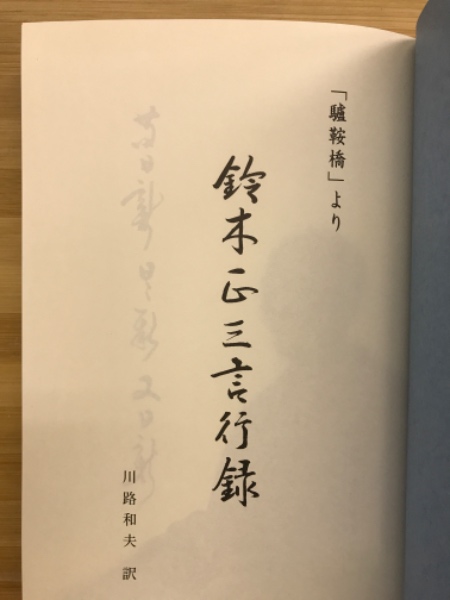 「驢鞍橋」より
鈴木正三言行録
川路和夫 訳